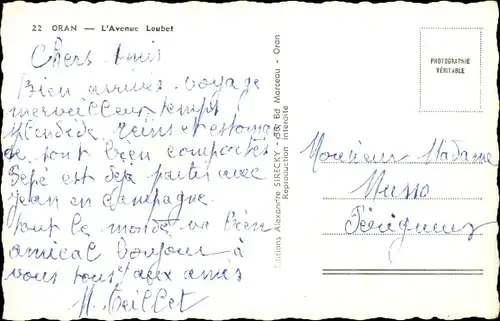 22 ORAN — L'Avenue Loubet
Chers Amis
Bien arrivés voyage
merveilleux temps
splendide reins et estomac
se sont bien comportés
Pépé est déjà partis avec
Jean en campagne
tout le monde va bien
amical bonjour à
vous tous et aux amis
M. Teillet
Editions Alexandre SIRECKY - 36, Bd Marceau - Oran
Reproduction Interdite
PHOTOGRAPHIE
VÉRITABLE
Monsieur Madame
Musso
Périgueux